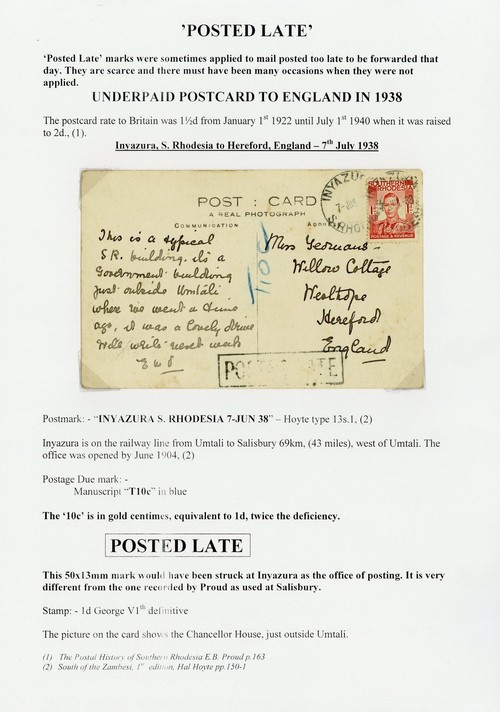 'POSTED LATE'
'Posted Late' marks were sometimes applied to mail posted too late to be forwarded that
day. They are scarce and there must have been many occasions when they were not
applied.
UNDERPAID POSTCARD TO ENGLAND IN 1938
The postcard rate to Britain was 1½d from January 1st 1922 until July 1st 1940 when it was raised
to 2d., (1).
Inyazura, S. Rhodesia to Hereford, England – 7th July 1938
POST : CARD
A REAL PHOTOGRAPH
COMMUNICATION
SOUTHERN
RHODESIA
1D 1D
POSTAGE & REVENUE
INYAZU
7-JUN
S.RHO
This is a typical
S.R. building. its a
Government building
just outside Umtali
where we went a time
ago, it was a lovely drive
will write next week
T10c
Miss Yeomans
Willow Cottage
Westhope
Hereford
England
POSTED LATE
Postmark: - "INYAZURA S. RHODESIA 7-JUN 38" – Hoyte type 13s.1, (2)
Inyazura is on the railway line from Umtali to Salisbury 69km, (43 miles), west of Umtali. The
office was opened by June 1904, (2)
Postage Due mark: -
Manuscript "T10c" in blue
The '10c' is in gold centimes, equivalent to 1d, twice the deficiency.
POSTED LATE
This 50x13mm mark would have been struck at Inyazura as the office of posting. It is very
different from the one recorded by Proud as used at Salisbury.
Stamp: - 1d George V1th definitive
The picture on the card shows the Chancellor House, just outside Umtali.
(1) The Postal History of Southern Rhodesia E.B. Proud p.163
(2) South of the Zambesi, 1st edition, Hal Hoyte pp.150-1